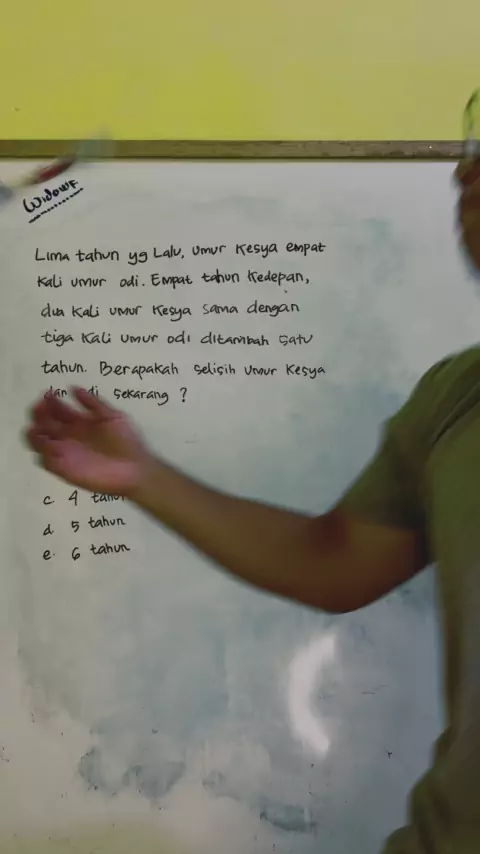 Lima tahun yg Lalu, umur Kesya empat
Kali umur odi. Empat tahun Kedepan,
dua Kali umur Kesya sama dengan
tiga Kali umur odi ditambah satu
tahun. Berapakah selisih umur Kesya
sekarang ?
c. 4
d. 5 tahun
e. 6 tahun